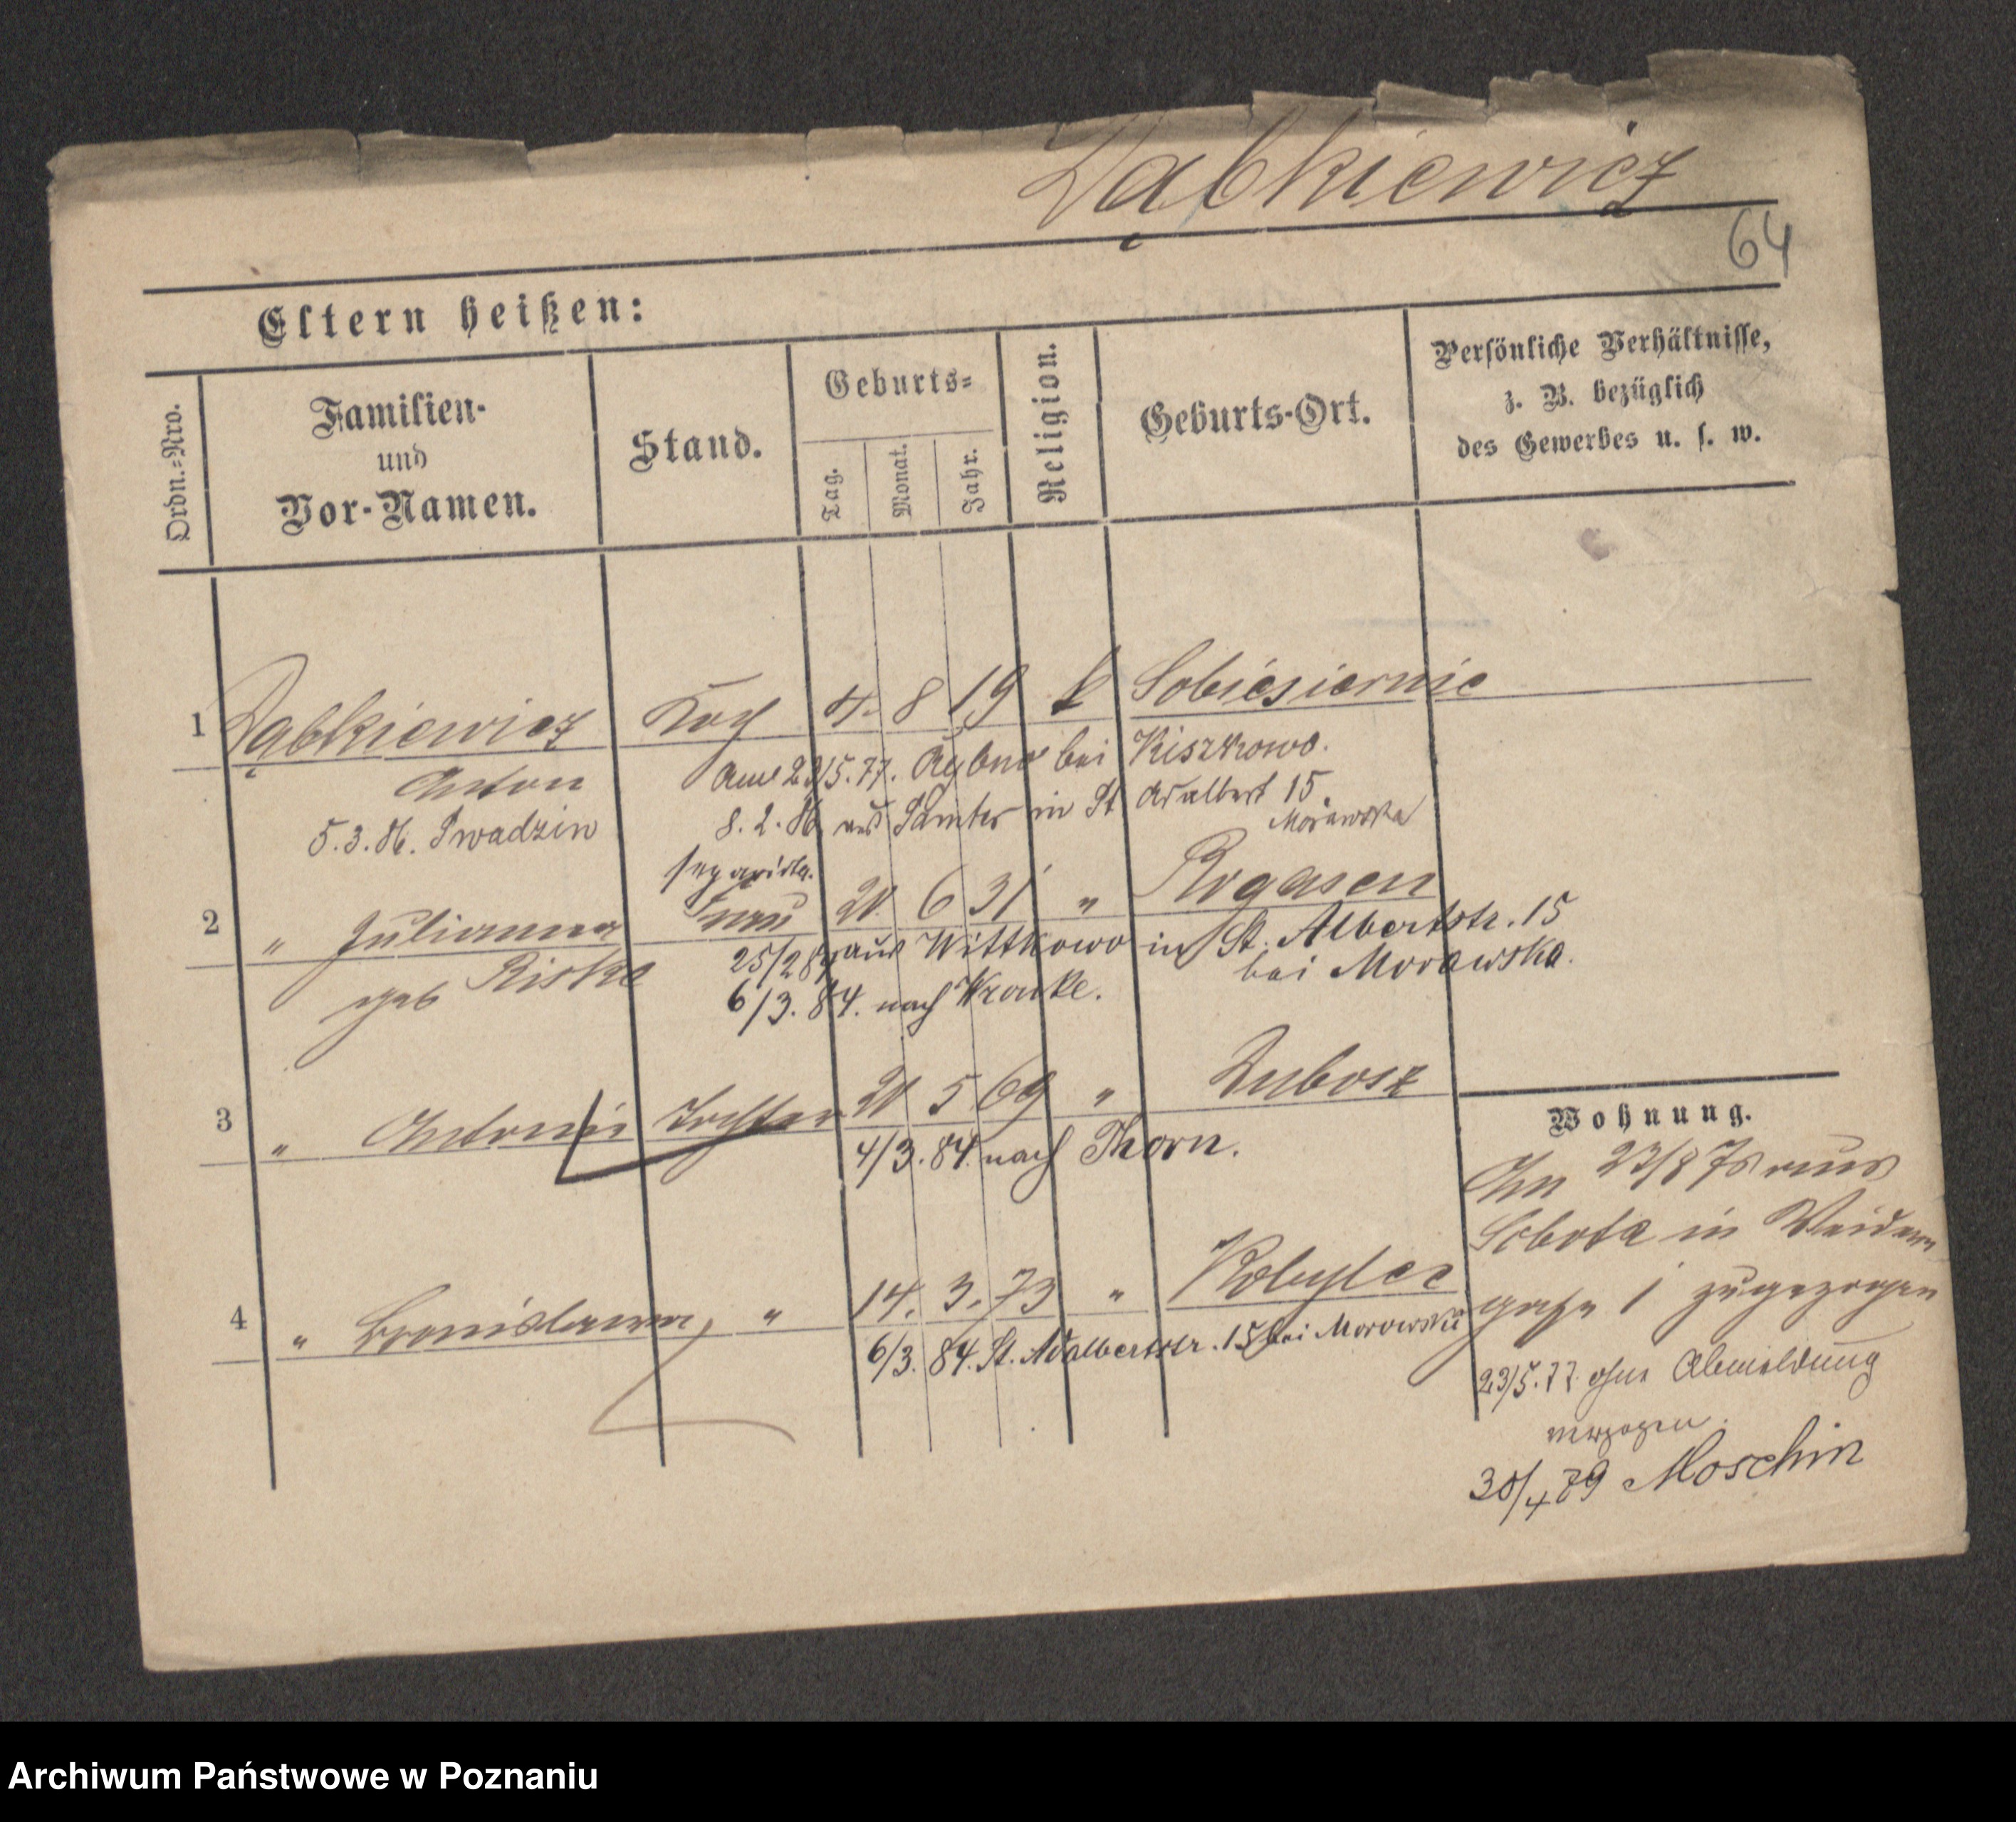 Dąbkiewicz
64
Eltern heißen:
Ordn.-Nro.
Familien-
und
Vor-Namen.
Stand.
Geburts-
Tag.
Monat.
Jahr.
Religion.
Geburts-Ort.
Persönliche Verhältnisse,
z. B. bezüglich
des Gewerbes u. s. w.
1 Dąbkiewicz Koch 4. 8 19 k Sobiesiernie
Anton
am 23/5. 77. Rybno bei Kiszkowo.
5. 3. 86. Swadzin
8. 2. 86 aus Samter in St Adalbert 15
Morawska
separirte.
2 " Julianna Frau 20. 6 31 " Rogasen
geb Riske
25/2 84 aus Wittkowo in St. Albertstr. 15
bei Morawska.
6/3. 84. nach Wronke.
3 " Antonie Tochter 20 5 69 " Lubosz
4/3. 84. nach Thorn.
4 " Bronislawa " 14. 3. 73 " Kobylec
6/3. 84. St. Adalbertstr. 15 bei Morowski
Wohnung.
23/8 75 aus
Sobota in Weiden
gasse 1 zugezogen
23/5. 77. ohne Abmeldung
verzogen.
30/4 79 Moschin
Archiwum Państwowe w Poznaniu